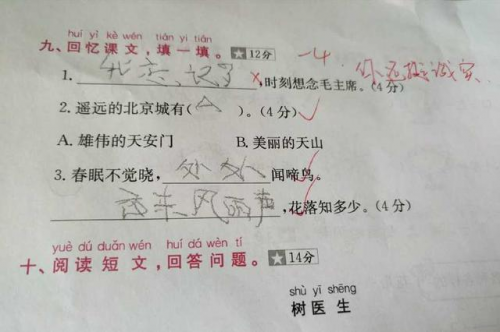 huí yì kè wén tián yi tián
九、回忆课文，填一填。★12分 -4
1. 忘、记了 ×,时刻想念毛主席。(4分)
2. 遥远的北京城有( A )。(4分)
A. 雄伟的天安门 B. 美丽的天山
3. 春眠不觉晓， 处处 闻啼鸟。
夜来风雨声 ,花落知多少。(4分)
yuè dú duǎn wén huí dá wèn tí
十、阅读短文，回答问题。★14分
shù yī shēng
树医生